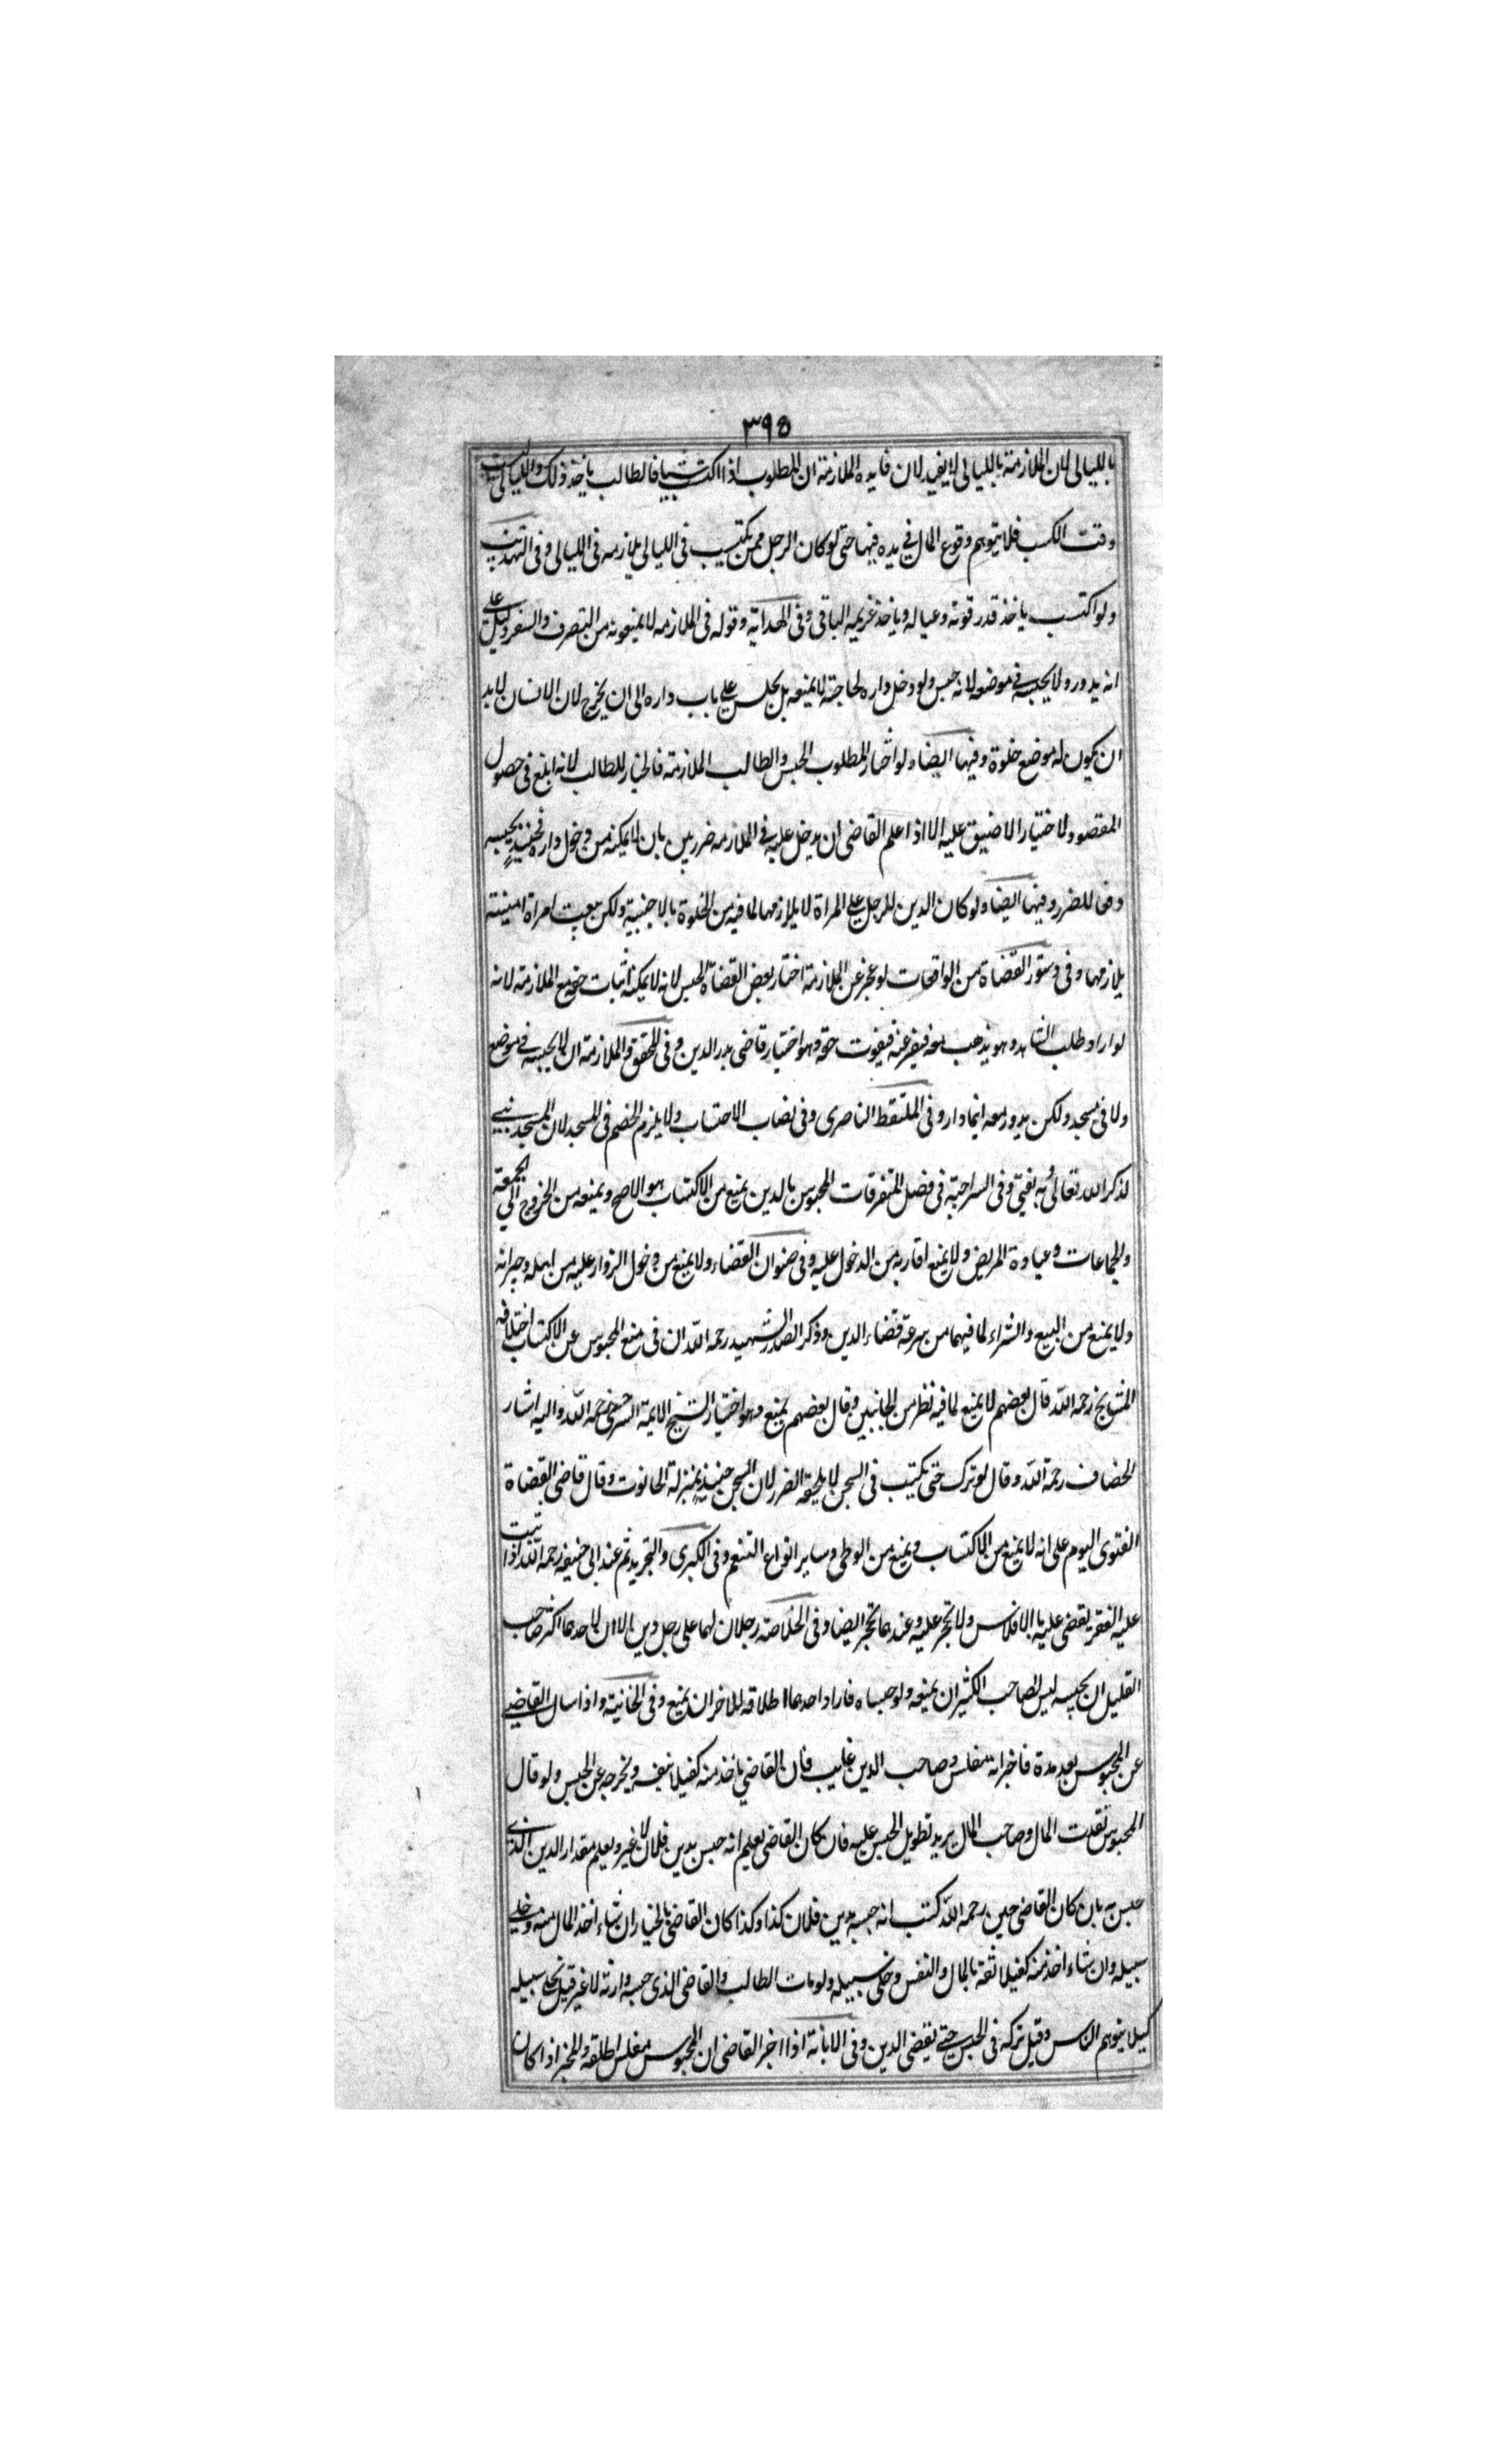 ٣٩٥
بالليالى لان الملازمة بالليالى لا يفيد لان فايدة الملازمة ان المطلوب اذا اكتسب شيئا فالطالب ياخذ ذلك والليالى ليست
وقت الكسب فلا يتوهم وقوع المال فى يده فيها حتى لو كان الرجل ممن يكتسب فى الليالى يلازمه فى الليالى وفى التهذيب
ولو اكتسب ياخذ قدر قوته وعياله وياخذ غريمه الباقى وفى الهداية وقوله فى الملازمه لا يمنعونه من التصرف والسفر دليل على
انه يدور ولا يحبسه فى موضعه لانه حبس ولو دخل داره لحاجته لا يمنعه بل يجلس على باب داره الى ان يخرج لان الانسان لا بد
ان يكون له موضع خلوة وفيها ايضا ولو اختار المطلوب الحبس والطالب الملازمة فالخيار للطالب لانه ابلغ فى حصول
المقصود لاختيار الاضيق عليه الا اذا علم القاضى ان يدخل عليه فى الملازمه ضرر بين بان لا يمكنه من دخول داره فحينئذٍ يحبسه
دفعا للضرر وفيها ايضا ولو كان الدين للرجل على المراة لا يلازمها لما فيه من الخلوة بالاجنبية ولكن يبعث امراة امينة
يلازمها وفى دستور القضاة من الواقعات لو عجز عن الملازمة اختار بعض القضاة الحبس لانه لا يمكنه اثبات حقه مع الملازمة لانه
لو اراد طلب الشاهد وهو يذهب معه فيفر عنه فيفوت حقه وهو اختيار قاضى بدر الدين وفى المحقق والملازمة ان لا يحبسه فى موضع
ولا فى مسجد ولكن يدور معه اينما دار وفى الملتقط الناصرى وفى نصاب الاحتساب ولا يلزم الخصم فى المسجد لان المسجد بنى
لذكر الله تعالى به يفتى وفى السراجية فى فصل المتفرقات المحبوس بالدين يمنع من الاكتساب هو الاصح ويمنعه من الخروج الى الجمعة
والجماعات وعيادة المريض ولا يمنع اقاربه من الدخول عليه وفى صنوان القضاء ولا يمنع من دخول الزوار عليه من اهله وجيرانه
ولا يمنع من البيع والشراء لما فيهما من سرعة قضاء الدين وذكر الصدر الشهيد رحمه الله ان فى منع المحبوس عن الاكتساب اختلافه
المشايخ رحمه الله قال بعضهم لا يمنع لما فيه نظر من الجانبين وقال بعضهم يمنع وهو اختيار الشيخ الايمة السرخسى رحمه الله واليه اشار
الخصاف رحمة الله وقال لو ترك حتى يكتسب فى السجن لا يلحقه الضرر لان السجن حينئذٍ بمنزلة الحانوت وقال قاضى القضاة
الفتوى اليوم على انه لا يمنع من الاكتساب ويمنع من الوطى وساير انواع التنعم وفى الكبرى والتجريد ثم عند ابى حنيفه رحمه الله اذا ثبت
عليه الفقر يقضى عليه بالافلاس ولا تحجر عليه وعندهما تحجر ايضا وفى الخلاصة رجلان لهما على رجل دين الا ان لاحدهما اكثر صاحب
القليل ان يحبسه ليس لصاحب الكثير ان يمنعه ولو حبساه فاراد احدهما اطلاقه للاخر ان يمنع وفى الخانية واذا سال القاضى
عن المحبوس بعد مدة فاخبر انه مفلس وصاحب الدين غايب فان القاضى ياخذ منه كفيلا بنفسه ويخرجه عن الحبس ولو قال
المحبوس نقدت المال وصاحب المال يريد تطويل الحبس عليه فان كان القاضى يعلم انه حبس بدين فلان لا غير ويعلم مقدار الدين الذى
حبس به بان كان القاضى حين رحمه الله كتب انه حبسه بدين فلان كذا وكذا كان القاضى بالخيار ان شاء اخذ المال منه وخلى
سبيله وان شاء اخذ منه كفيلا ثقة بالمال والنفس وخلى سبيله ولو مات الطالب والقاضى الذى حبسه وارثه لا غير قيل يخلى سبيله
كيلا يتوهم الناس وقيل تركه فى الحبس حتى يقضى الدين وفى الابانة اذا اخبر القاضى ان المحبوس مفلس اطلقه والمخبر اذا كان